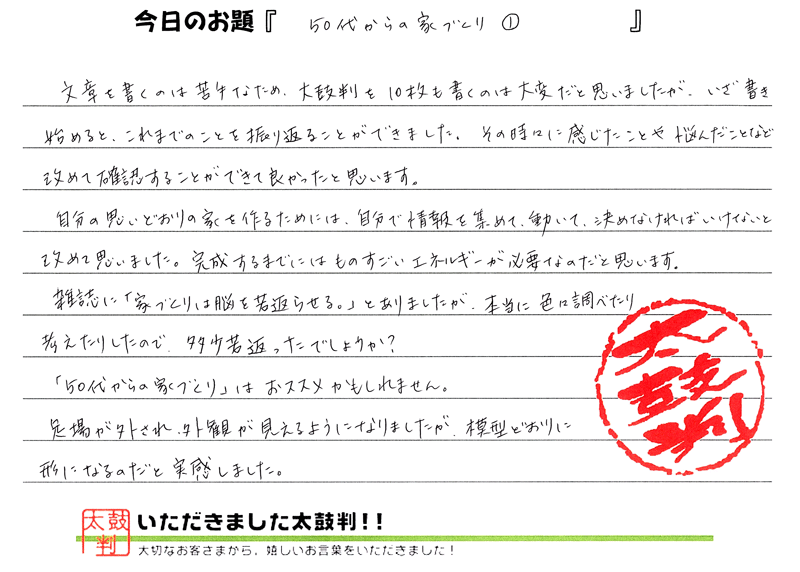 今日のお題『 50代からの家づくり ① 』
文章を書くのは苦手なため、太鼓判を10枚も書くのは大変だと思いましたが、いざ書き
始めると、これまでのことを振り返ることができました。その時々に感じたことや悩んだことなど
改めて確認することができて良かったと思います。
自分の思いどおりの家を作るためには、自分で情報を集めて、動いて、決めなければいけないと
改めて思いました。完成するまでにはものすごいエネルギーが必要なのだと思います。
雑誌に「家づくりは脳を若返らせる。」とありましたが、本当に色々調べたり
考えたりしたので、多少若返ったでしょうか?
「50代からの家づくり」はおススメかもしれません。
足場が外され、外観が見えるようになりましたが、模型どおりに
形になるのだと実感しました。
太鼓判
太鼓判
いただきました太鼓判!!
大切なお客さまから、嬉しいお言葉をいただきました!